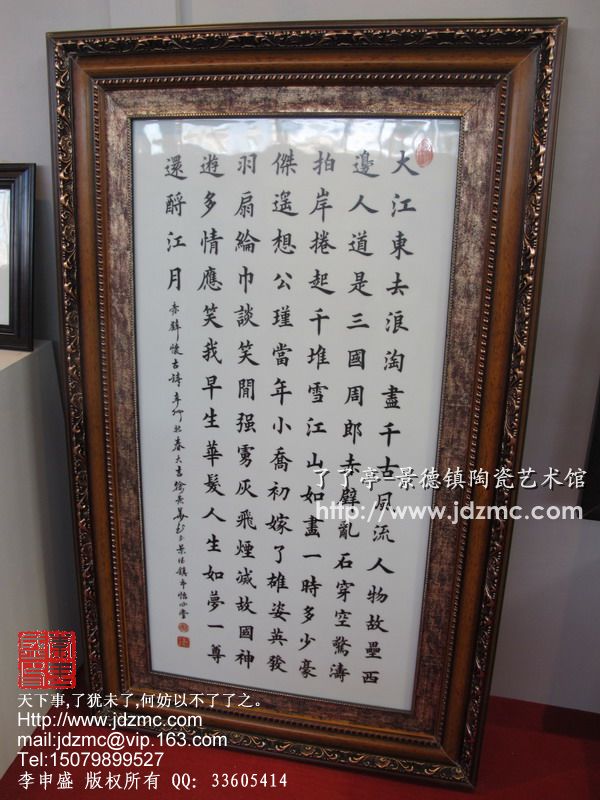 大江東去浪淘盡千古風流人物故壘西
邊人道是三國周郎赤壁亂石穿空驚濤
拍岸捲起千堆雪江山如畫一時多少豪
傑遥想公瑾當年小喬初嫁了雄姿英發
羽扇綸巾談笑間强虜灰飛煙滅故國神
遊多情應笑我早生華髮人生如夢一尊
還酹江月
赤壁懷古詩辛卯春大吉景德鎮市怡心堂
了了亭-景德镇陶瓷艺术馆
http://www.jdzmc.com
天下事,了犹未了,何妨以不了了之。
Http://www.jdzmc.com
mail:jdzmc@vip.163.com
Tel:15079899527
李申盛 版权所有 QQ: 33605414